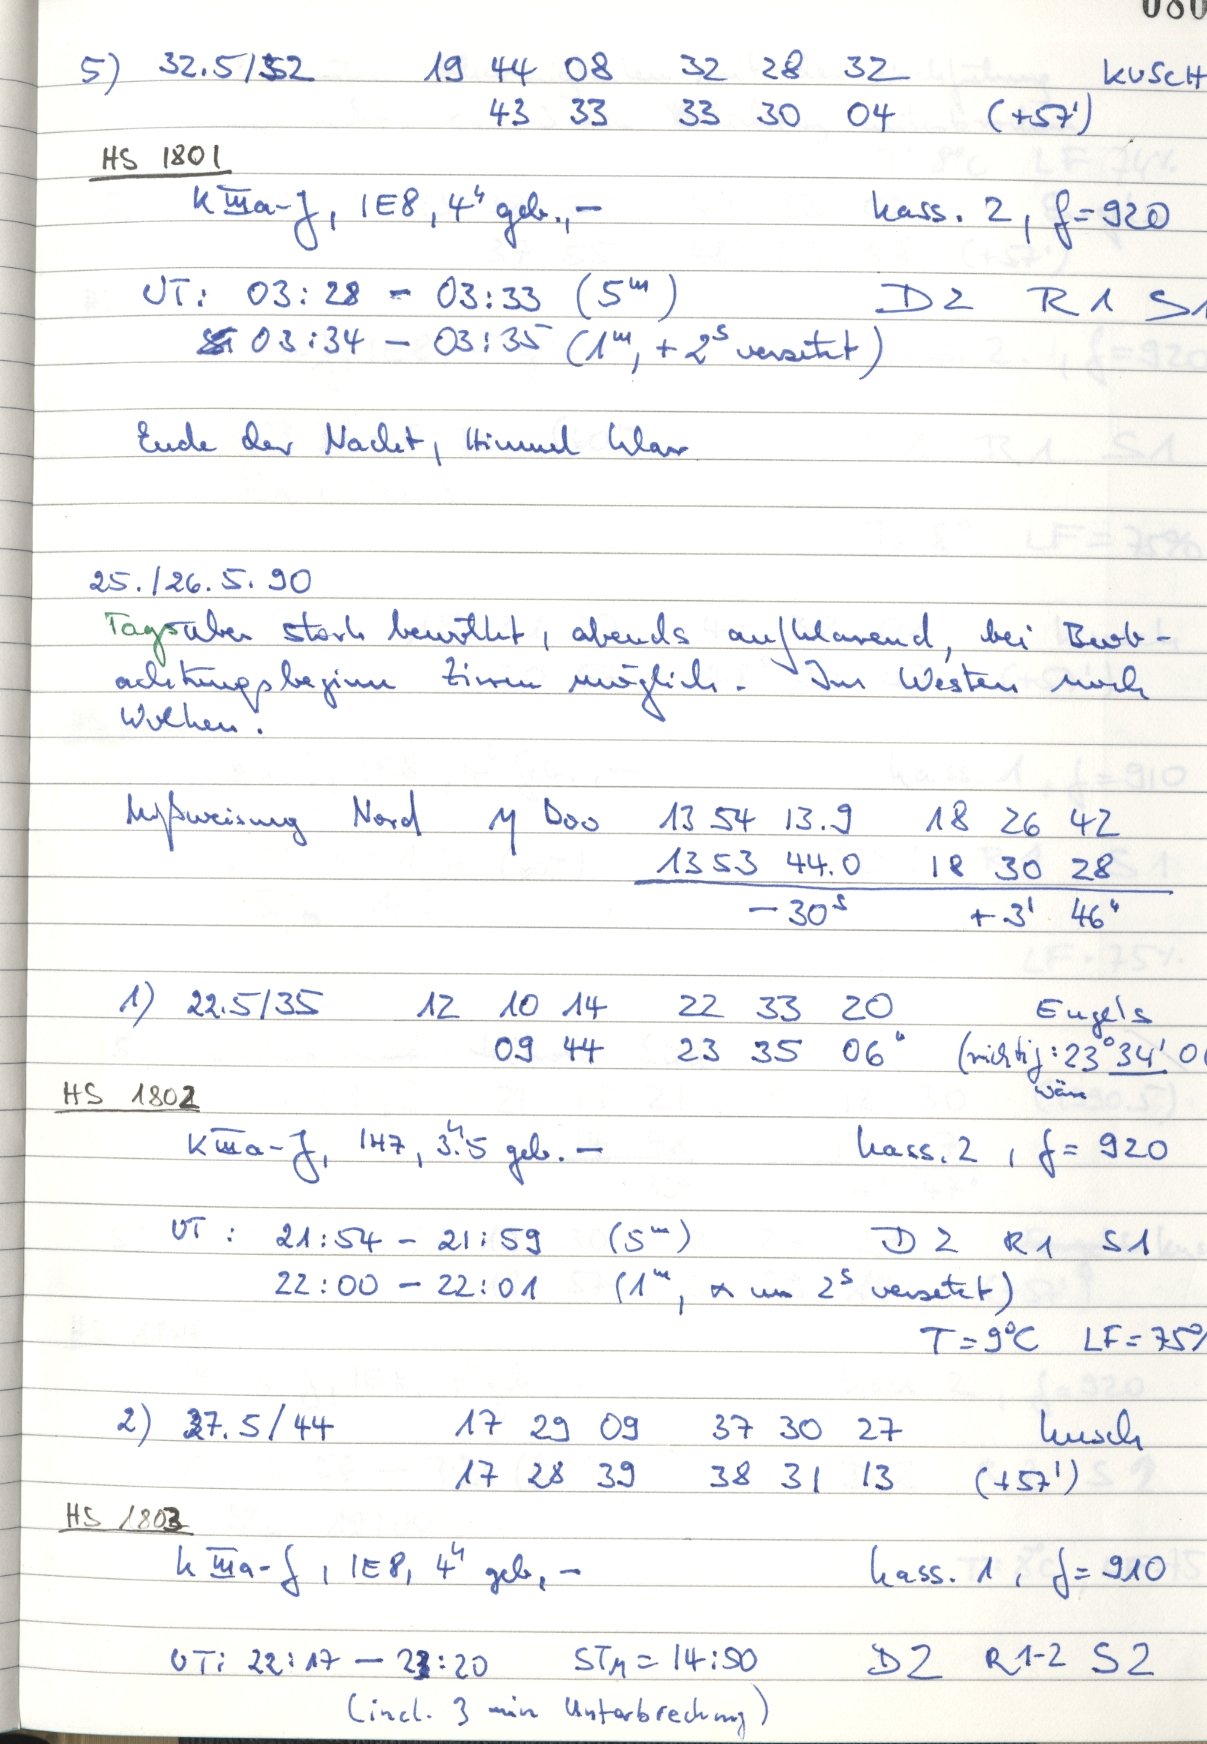 080
5) 32.5/52 19 44 08 32 28 32 KUSCH
43 33 33 30 04 (+57')
HS 1801
K IIIa-J, 1E8, 4h geb., -
Kass. 2, f=920
UT: 03:28 - 03:33 (5m) D2 R1 S1
03:34 - 03:35 (1m, +2s versetzt)
Ende der Nacht, Himmel klar
25./26.5.90
Tagsüber stark bewölkt, abends aufklarend, bei Beob-
achtungsbeginn Zirren möglich. Im Westen noch
Wolken.
Mißweisung Nord η Boo 13 54 13.9 18 26 42
13 53 44.0 18 30 28
-30s +3' 46"
1) 22.5/35 12 10 14 22 33 20 Engels
09 44 23 35 06" (richtig: 23° 34' 0
wäre
HS 1802
K IIIa-J, 1H7, 3h.5 geb. - Kass. 2, f= 920
UT: 21:54 - 21:59 (5m) D2 R1 S1
22:00 - 22:01 (1m, α um 2s versetzt)
T=9°C LF=75%
2) 37.5/44 17 29 09 37 30 27 Kusch
17 28 39 38 31 13 (+57')
HS 1803
K IIIa-J, 1E8, 4h geb, - Kass. 1, f=910
UT: 22:17 - 23:20 STM = 14:50 D2 R1-2 S2
(incl. 3 min Unterbrechung)